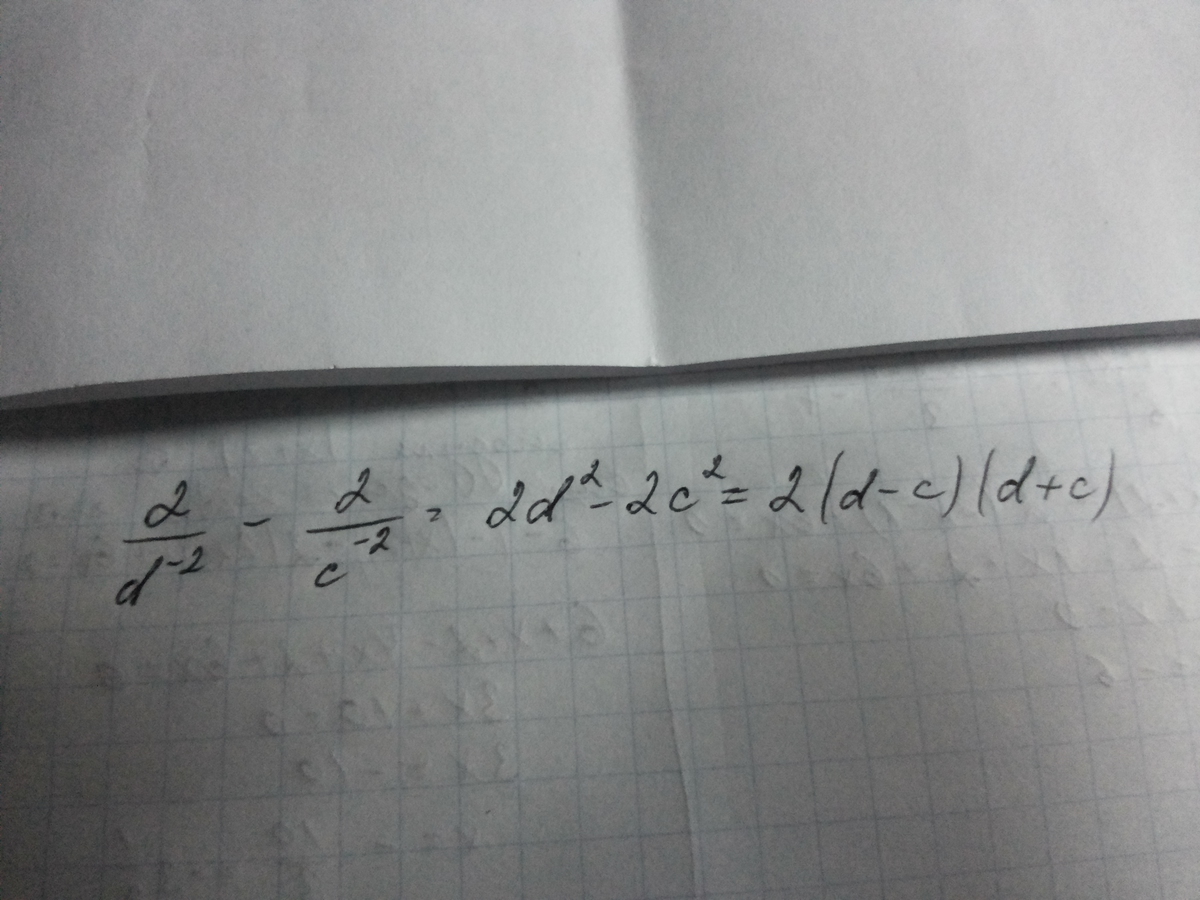 2/d⁻² - 2/c⁻² = 2d² - 2c² = 2(d-c)(d+c)